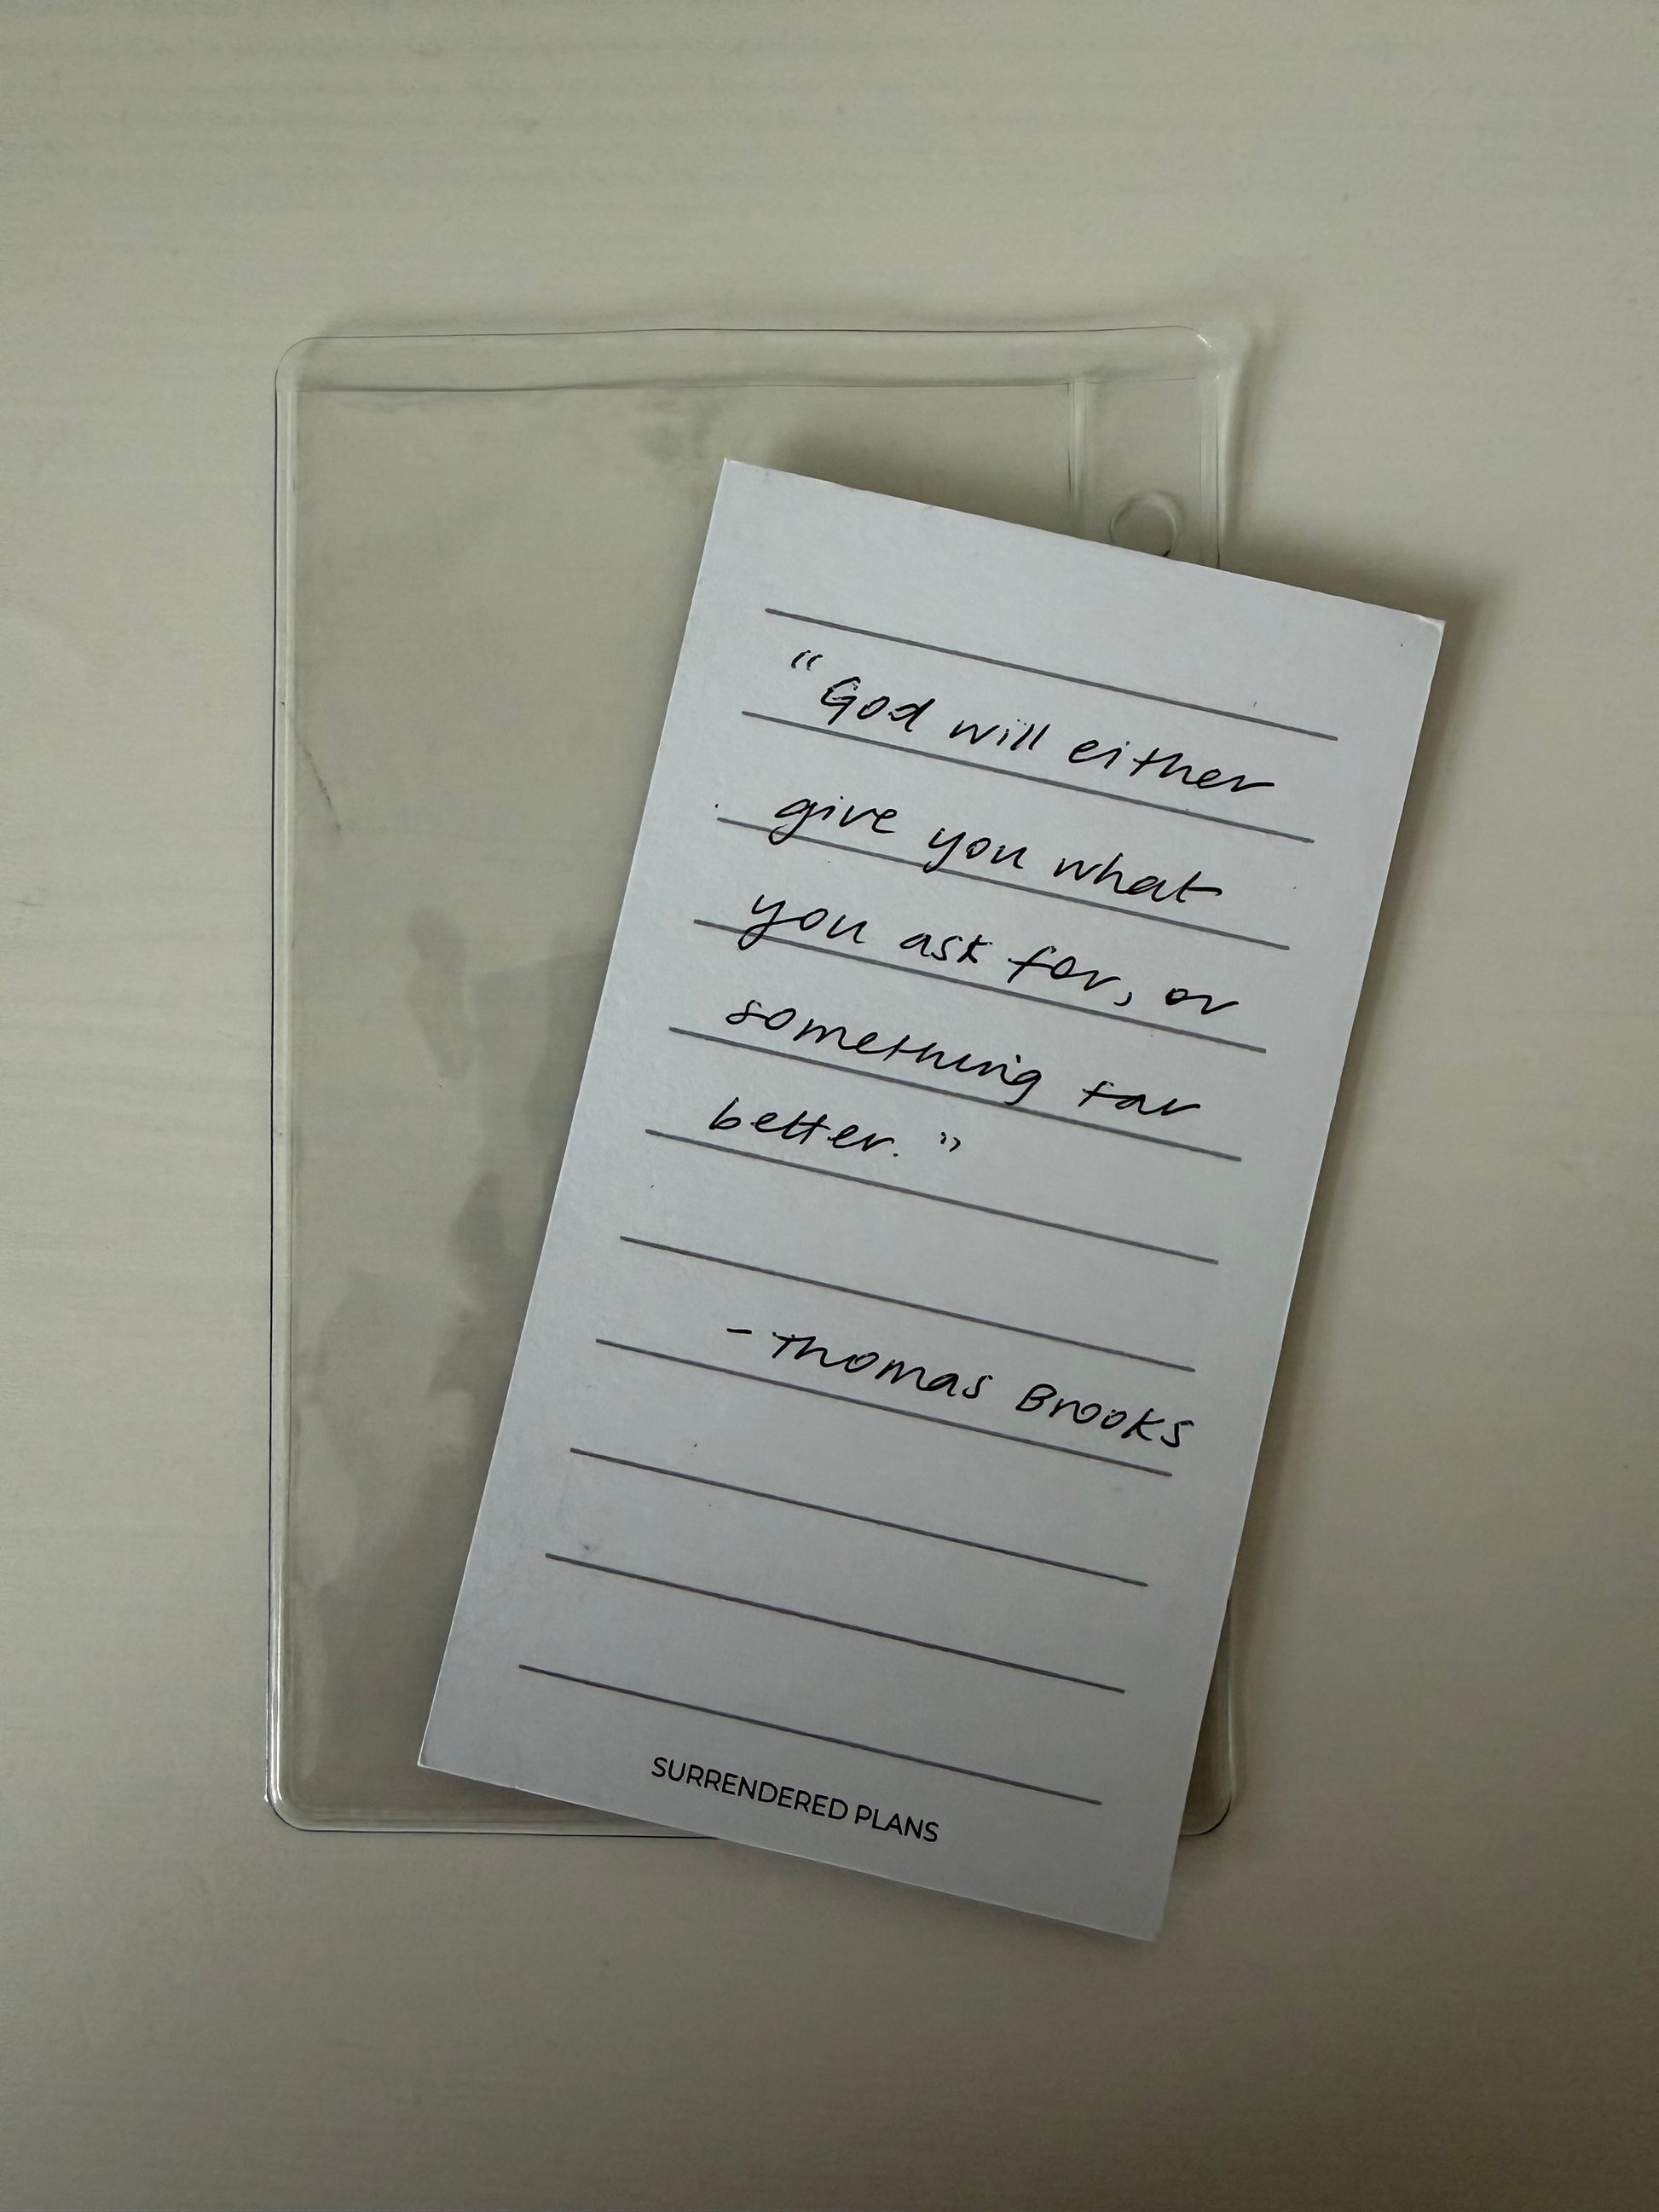 “God will either
give you what
you ask for, or
something far
better.”
- Thomas Brooks
SURRENDERED PLANS